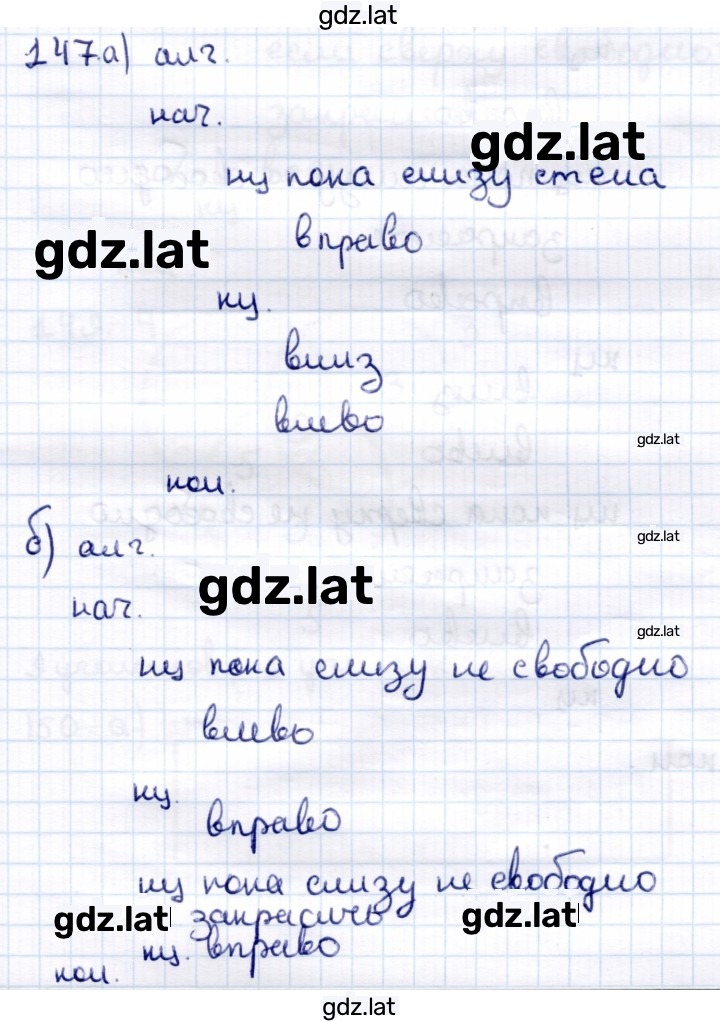 gdz.lat
147.а) алг.
нач.
gdz.lat
нц пока снизу стена
вправо
gdz.lat
кц.
вниз
влево
gdz.lat
кон.
gdz.lat
б) алг.
gdz.lat
нач.
gdz.lat
нц пока снизу не свободно
влево
кц.
вправо
нц пока снизу не свободно
gdz.lat закрасить gdz.lat
кц. вправо
кон.
gdz.lat